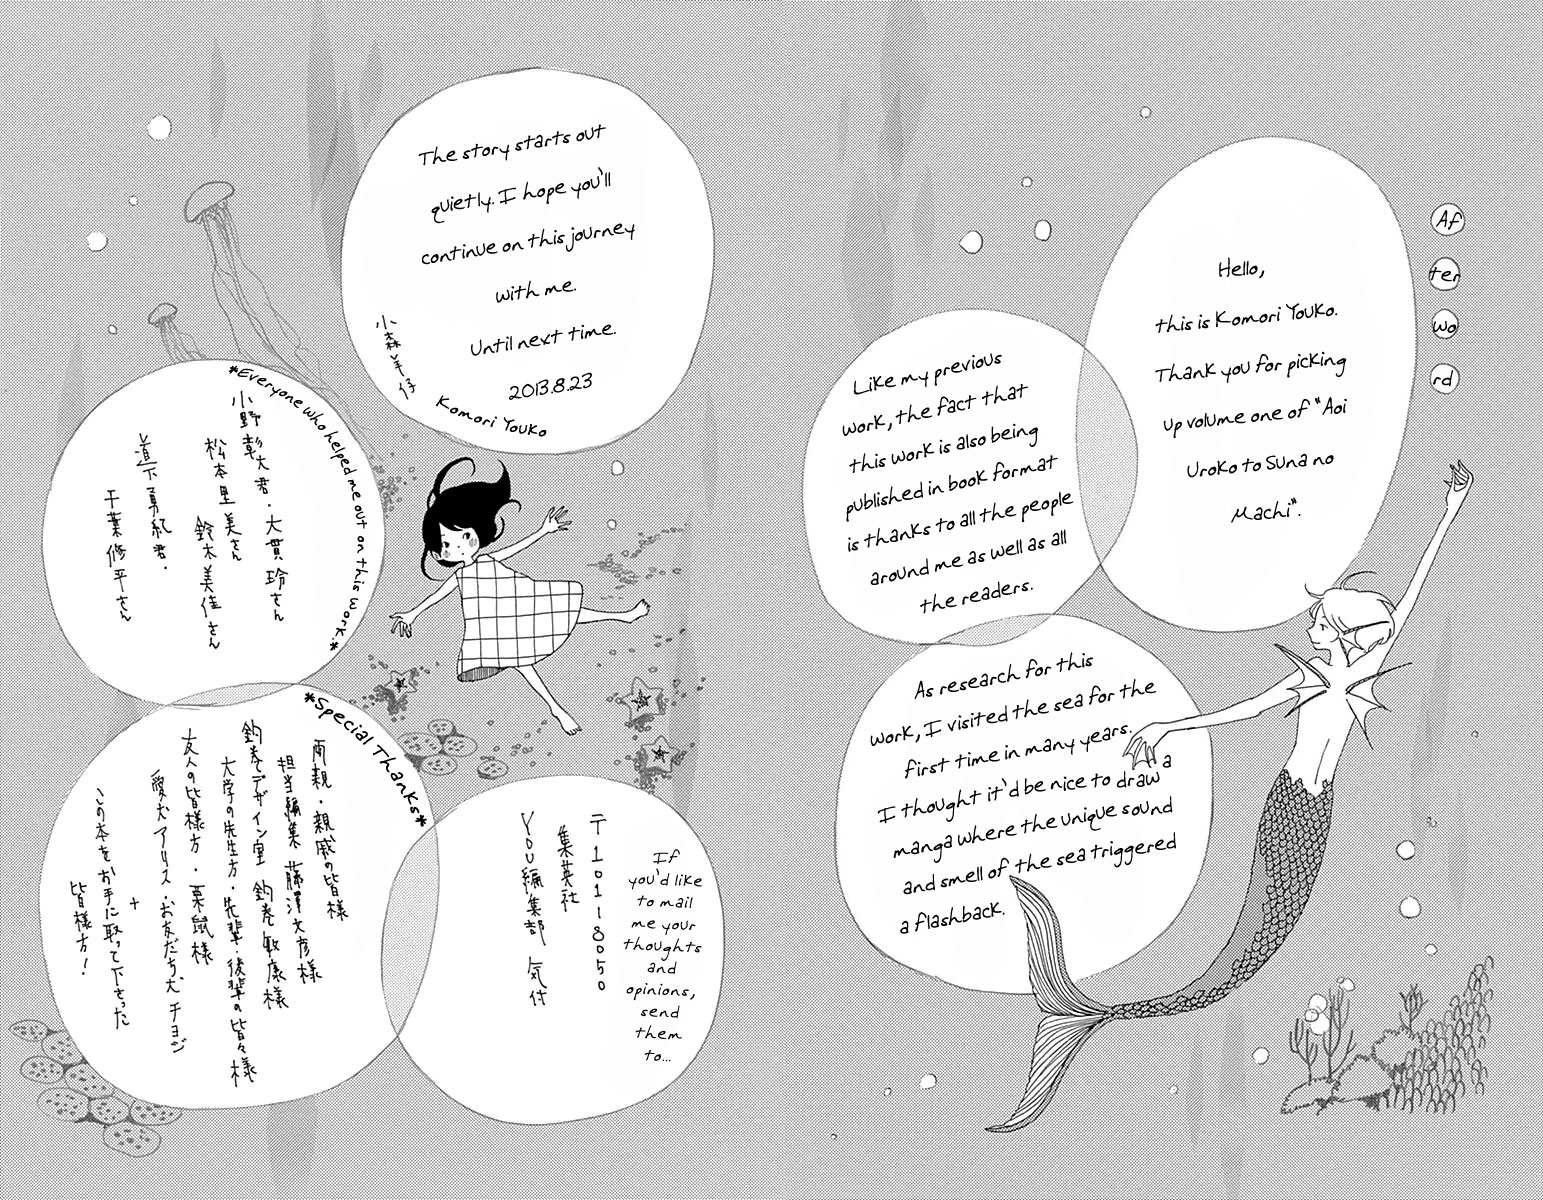 Af
ter
wo
rd
Hello,
this is Komori Youko.
Thank you for picking
up volume one of "Aoi
Uroko to Suna no
Machi".
Like my previous
work, the fact that
this work is also being
published in book format
is thanks to all the people
around me as well as all
the readers.
As research for this
work, I visited the sea for the
first time in many years.
I thought it'd be nice to draw a
manga where the unique sound
and smell of the sea triggered
a flashback.
The story starts out
quietly. I hope you'll
continue on this journey
with me.
Until next time.
2013.8.23
小森羊仔
Komori Youko
*Everyone who helped me out on this work.*
小野彰大君・大貫玲さん
松本里美さん
鈴木美佳さん
道下勇紀君・
千葉修平さん
*Special Thanks*
両親・親戚の皆様
担当編集 藤澤文彦様
釣巻デザイン室 釣巻敏康様
大学の先生方・先輩・後輩の皆々様
友人の皆様方・栗鼠様
愛犬アリス・お友だち犬 チョジ
+
この本をお手に取って下さった
皆様方!
If
you'd like
to mail
me your
thoughts
and
opinions,
send
them
to...
〒101-8050
集英社
YOU編集部 気付